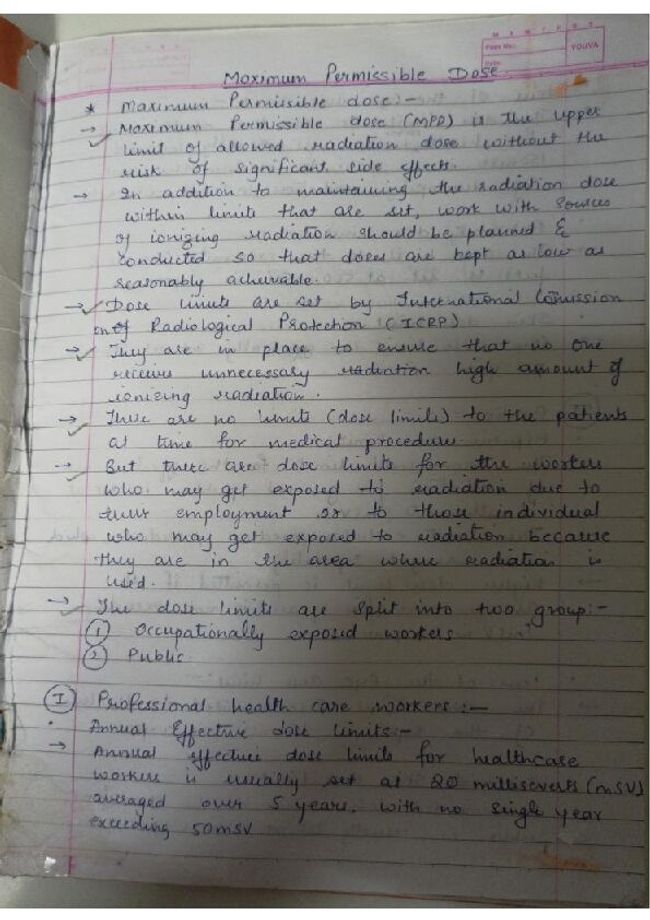 MINIPDS
Page No.:
Date
YOUVA
Maximum Permissible Dose.
* Maximum Permissible dose:-
→ Maximum Permissible dose (MPD) is the upper
limit of allowed radiation dose without the
risk of significant side effects.
→ In addition to maintaining the radiation dose
within limits that are set, work with sources
of ionizing radiation should be planned &
conducted so that doses are kept as low as
reasonably achievable.
→ Dose limits are set by International Comission
of Radiological Protection (ICRP)
→ They are in place to ensure that no one
recieve unnecessary radiation high amount of
ionizing radiation.
→ There are no limits (dose limits) to the patients
at time for medical procedures
→ But there are dose limits for the workers
who may get exposed to radiation due to
their employment or to those individual
who may get exposed to radiation because
they are in the area where radiation is
used.
→ The dose limits are split into two group:-
① Occupationally exposed workers
② Public
Ⓘ Professional health care workers:-
• Annual Effective dose limits:-
→ Annual effective dose limits for healthcare
workers is usually set at 20 milliseverts (mSV)
averaged over 5 years. with no single year
exceeding 50mSV